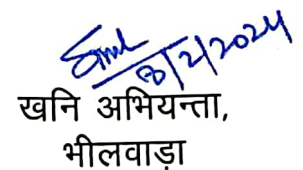 8/2/2024
खनि अभियन्ता,
भीलवाड़ा